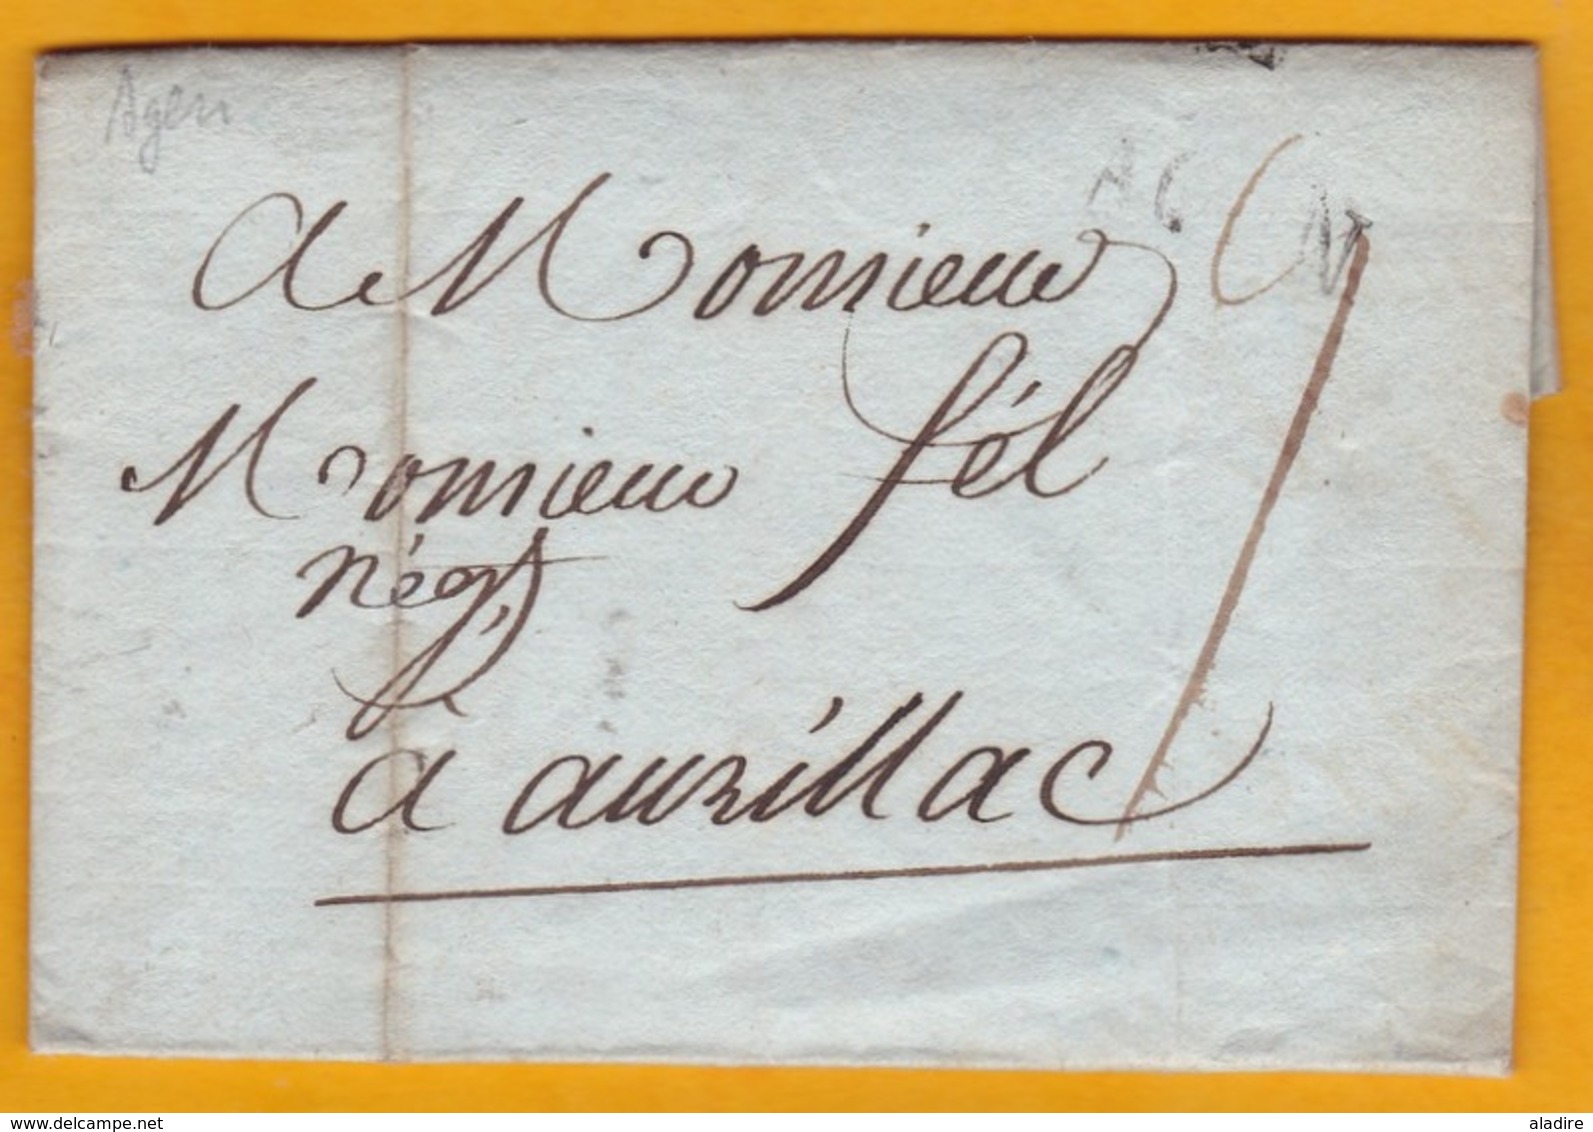 Agen
AGEN
A Monsieur
Monsieur fél
négt
à aurillac
delcampe.net
aladire